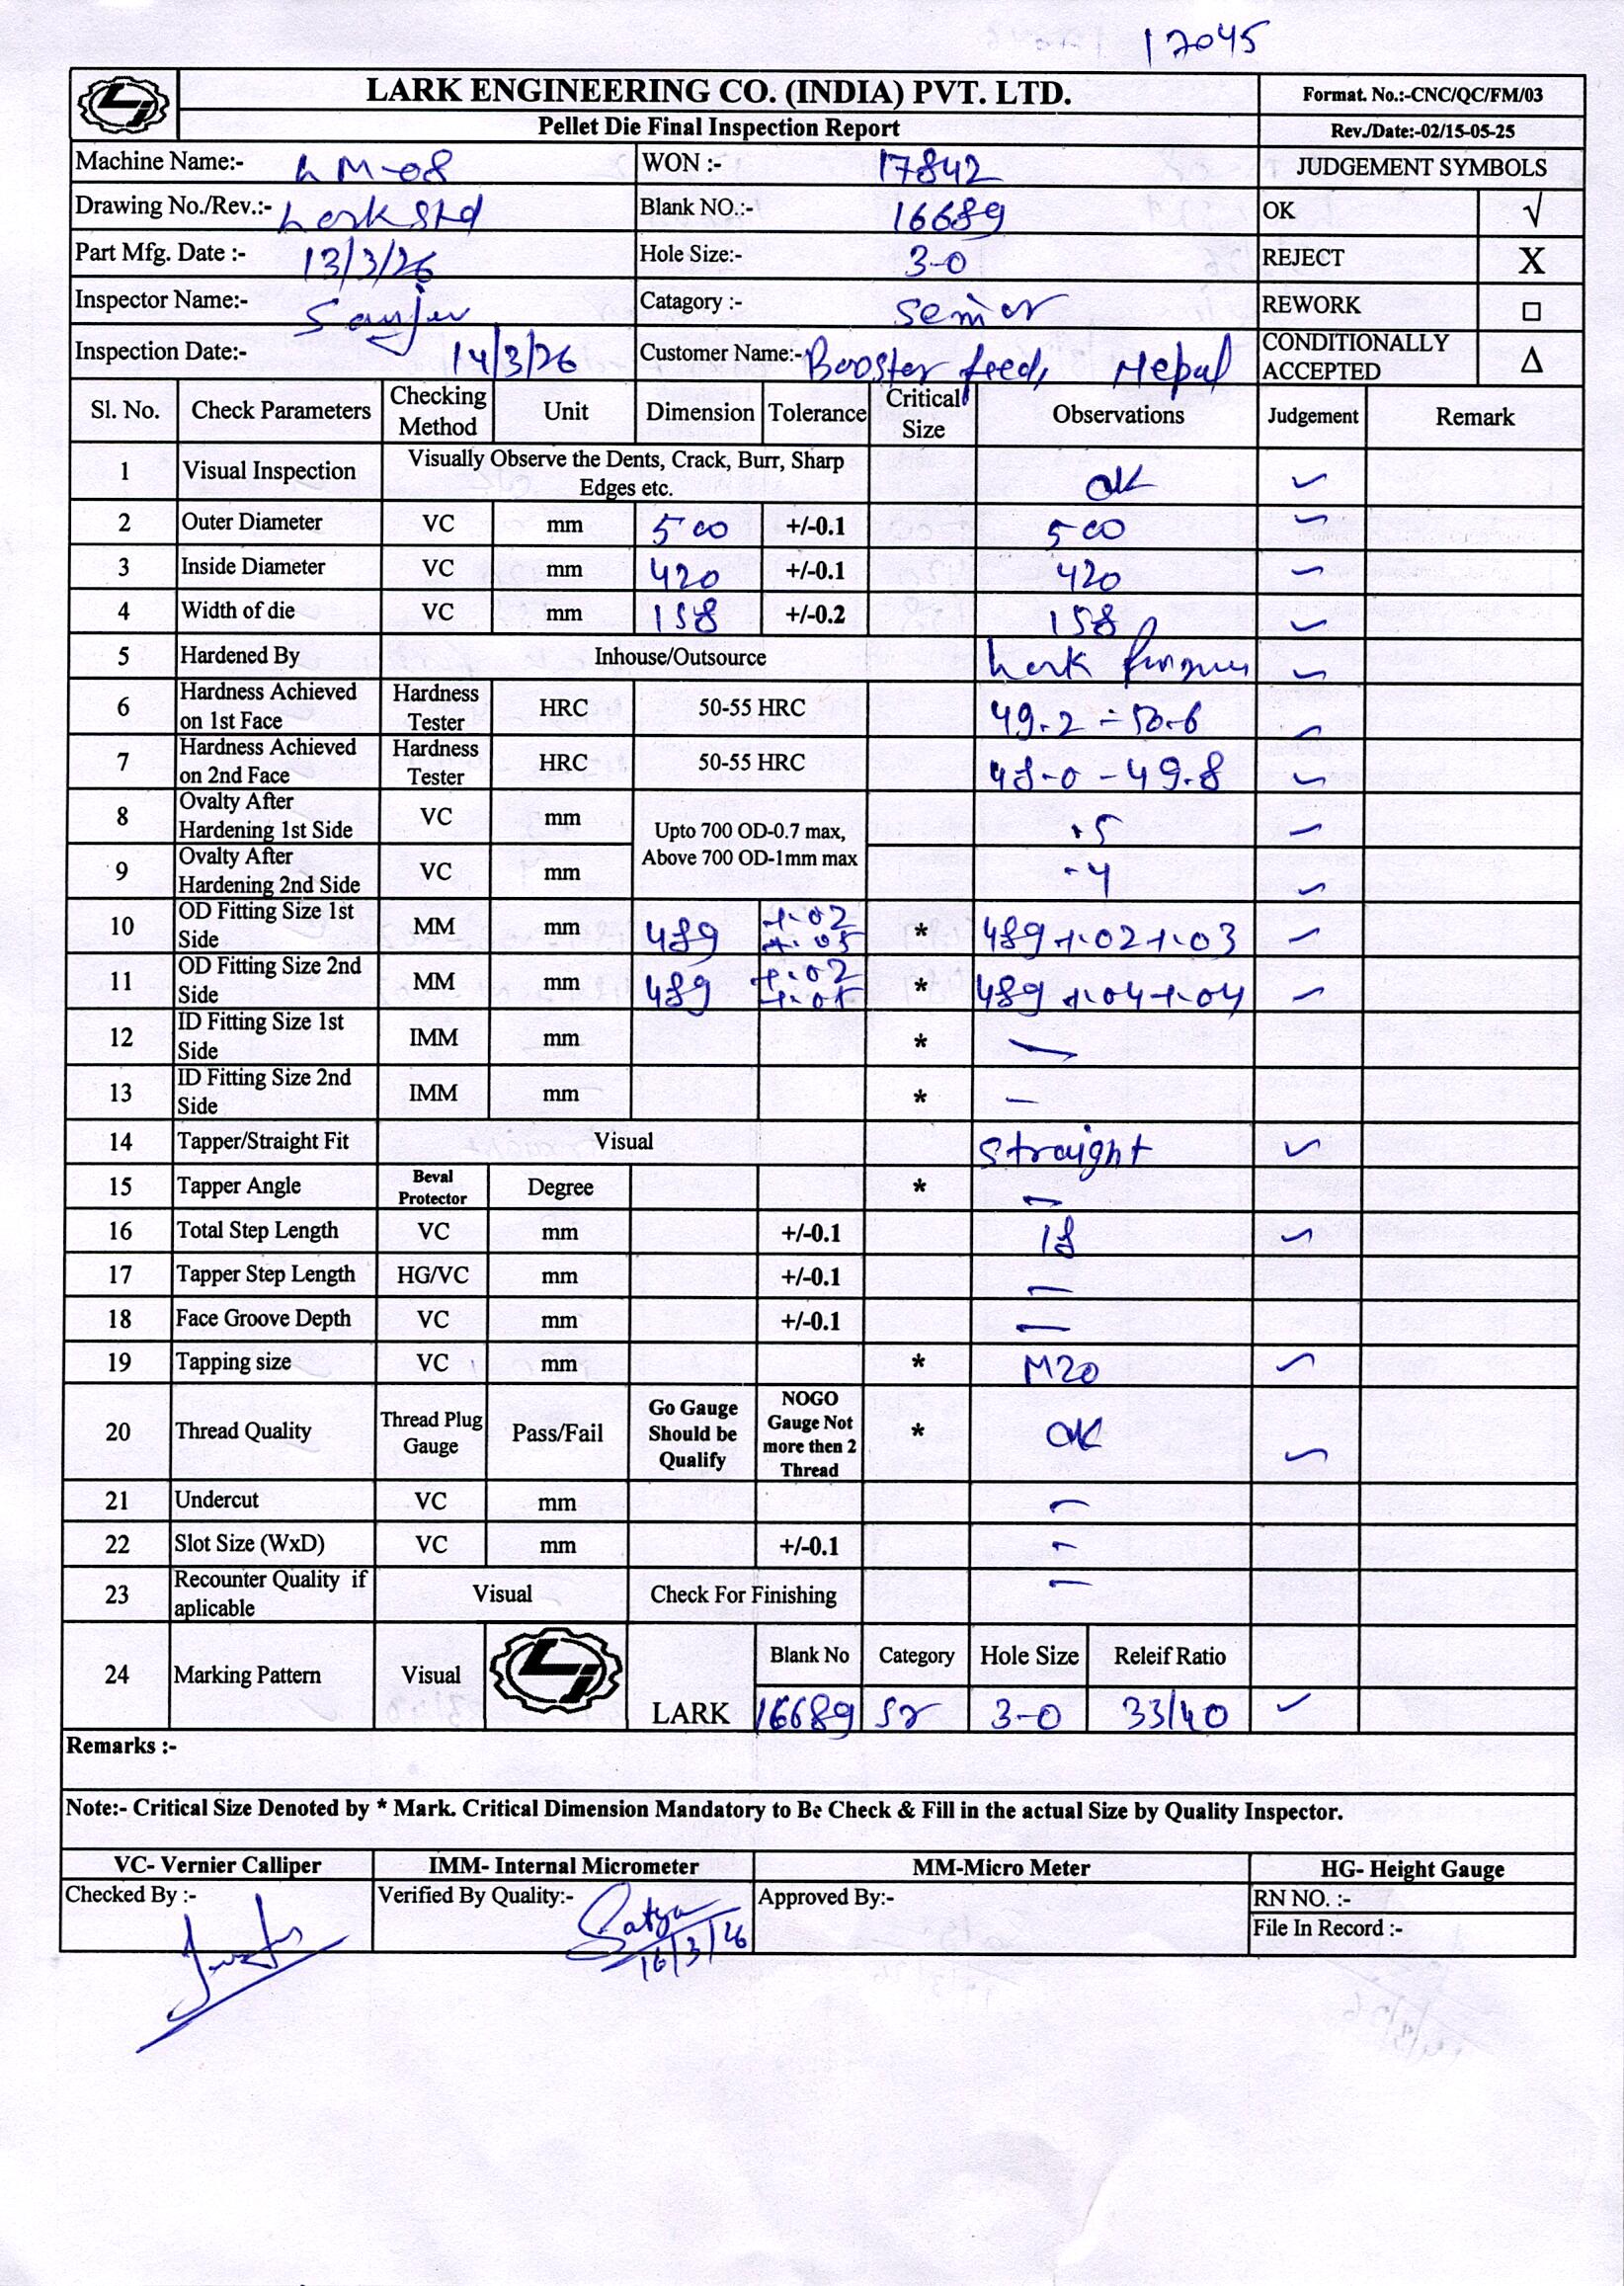 17045
LARK ENGINEERING CO. (INDIA) PVT. LTD. Format. No.:-CNC/QC/FM/03
Pellet Die Final Inspection Report Rev./Date:-02/15-05-25
Machine Name:- LM-08 WON :- 17842 JUDGEMENT SYMBOLS
Drawing No./Rev.:- Lark Std Blank NO.:- 16689 OK √
Part Mfg. Date :- 13/3/26 Hole Size:- 3-0 REJECT X
Inspector Name:- Sanjev Catagory :- Senior REWORK □
Inspection Date:- 14/3/26 Customer Name:- Booster feed, Nepal CONDITIONALLY ACCEPTED Δ
Sl. No. Check Parameters Checking Method Unit Dimension Tolerance Critical Size Observations Judgement Remark
1 Visual Inspection Visually Observe the Dents, Crack, Burr, Sharp Edges etc. OK ✓
2 Outer Diameter VC mm 500 +/-0.1 500 ✓
3 Inside Diameter VC mm 420 +/-0.1 420 ✓
4 Width of die VC mm 158 +/-0.2 158 ✓
5 Hardened By Inhouse/Outsource Lark ✓
6 Hardness Achieved on 1st Face Hardness Tester HRC 50-55 HRC 49.2 - 50.6 ✓
7 Hardness Achieved on 2nd Face Hardness Tester HRC 50-55 HRC 48-0 - 49.8 ✓
8 Ovalty After Hardening 1st Side VC mm Upto 700 OD-0.7 max, Above 700 OD-1mm max .5 ✓
9 Ovalty After Hardening 2nd Side VC mm .4 ✓
10 OD Fitting Size 1st Side MM mm 489 +.02 +.05 * 489 +.02 +.03 ✓
11 OD Fitting Size 2nd Side MM mm 489 +.02 +.05 * 489 +.04 +.04 ✓
12 ID Fitting Size 1st Side IMM mm * —
13 ID Fitting Size 2nd Side IMM mm * —
14 Tapper/Straight Fit Visual Straight ✓
15 Tapper Angle Beval Protector Degree * —
16 Total Step Length VC mm +/-0.1 18 ✓
17 Tapper Step Length HG/VC mm +/-0.1 —
18 Face Groove Depth VC mm +/-0.1 —
19 Tapping size VC mm * M20 ✓
20 Thread Quality Thread Plug Gauge Pass/Fail Go Gauge Should be Qualify NOGO Gauge Not more then 2 Thread * OK ✓
21 Undercut VC mm —
22 Slot Size (WxD) VC mm +/-0.1 —
23 Recounter Quality if aplicable Visual Check For Finishing —
24 Marking Pattern Visual LARK Blank No Category Hole Size Releif Ratio
16689 Sr 3-0 33/40 ✓
Remarks :-
Note:- Critical Size Denoted by * Mark. Critical Dimension Mandatory to Be Check & Fill in the actual Size by Quality Inspector.
VC- Vernier Calliper IMM- Internal Micrometer MM-Micro Meter HG- Height Gauge
Checked By :- Verified By Quality:- Satya 16/3/26 Approved By:- RN NO. :-
File In Record :-